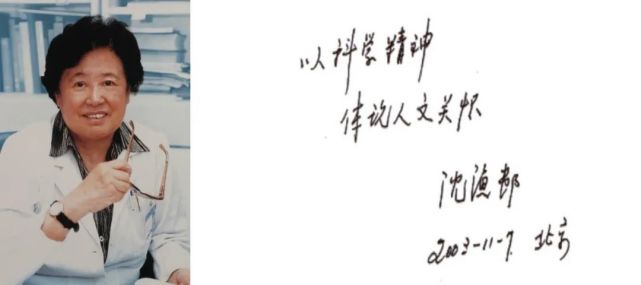 以科学精神
体现人文关怀
沈渔邨
2003-11-7. 北京